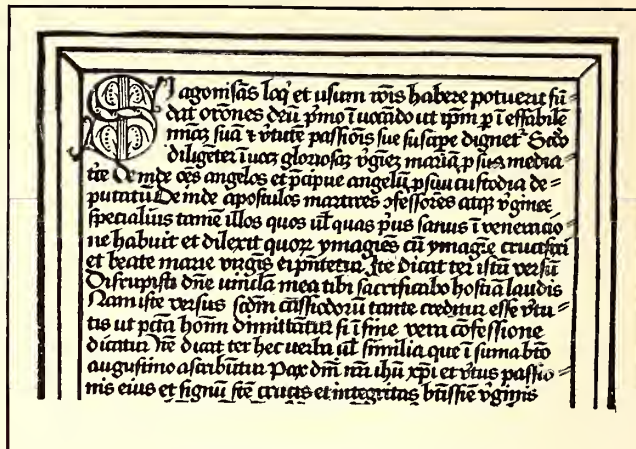 Si agonisās loq̄ et usum rōis habere potuerit fū=
dat orōnes deū pͥmo īuocādo ut ip̄m p ī effabilē
mīcaȝ suā ⁊ v̄tutē passiōis sue suscipe dignet᷑ Scd̄o
diligēter īuocȝ gloriosaȝ v̄gīeȝ mariā p sua media=
tīe Deinde oēs angelos et p̄cipue angelū p sui custodia de=
putatū Deinde apostulos martires ↄfessores atqȝ v̄gines
specialius tamē illos quos ul̄ quas pͥus sanus ī veneracio=
ne habuit et dilexit quoꝝ ymagīes cū ymagīe crucifixi
et beate marie virgīs ei p̄ntetur Itē dicat ter istū versū
Disrupisti dn̄e vincula mea tibi sacrificabo hostiā laudis
Nam iste versus scd̄m cassiodorū tante creditur esse v̄tu=
tis ut pctā hoīm dimittātur si ī fine vera cōfessione
dicatur Itē dicat ter hec uerba ul̄ similia que ī suma btō
augustino ascribūtur Pax dn̄i nr̄i ihū xp̄i et v̄tus passio=
nis eius et signū scē crucis et integritas btīssiē v̄ginis